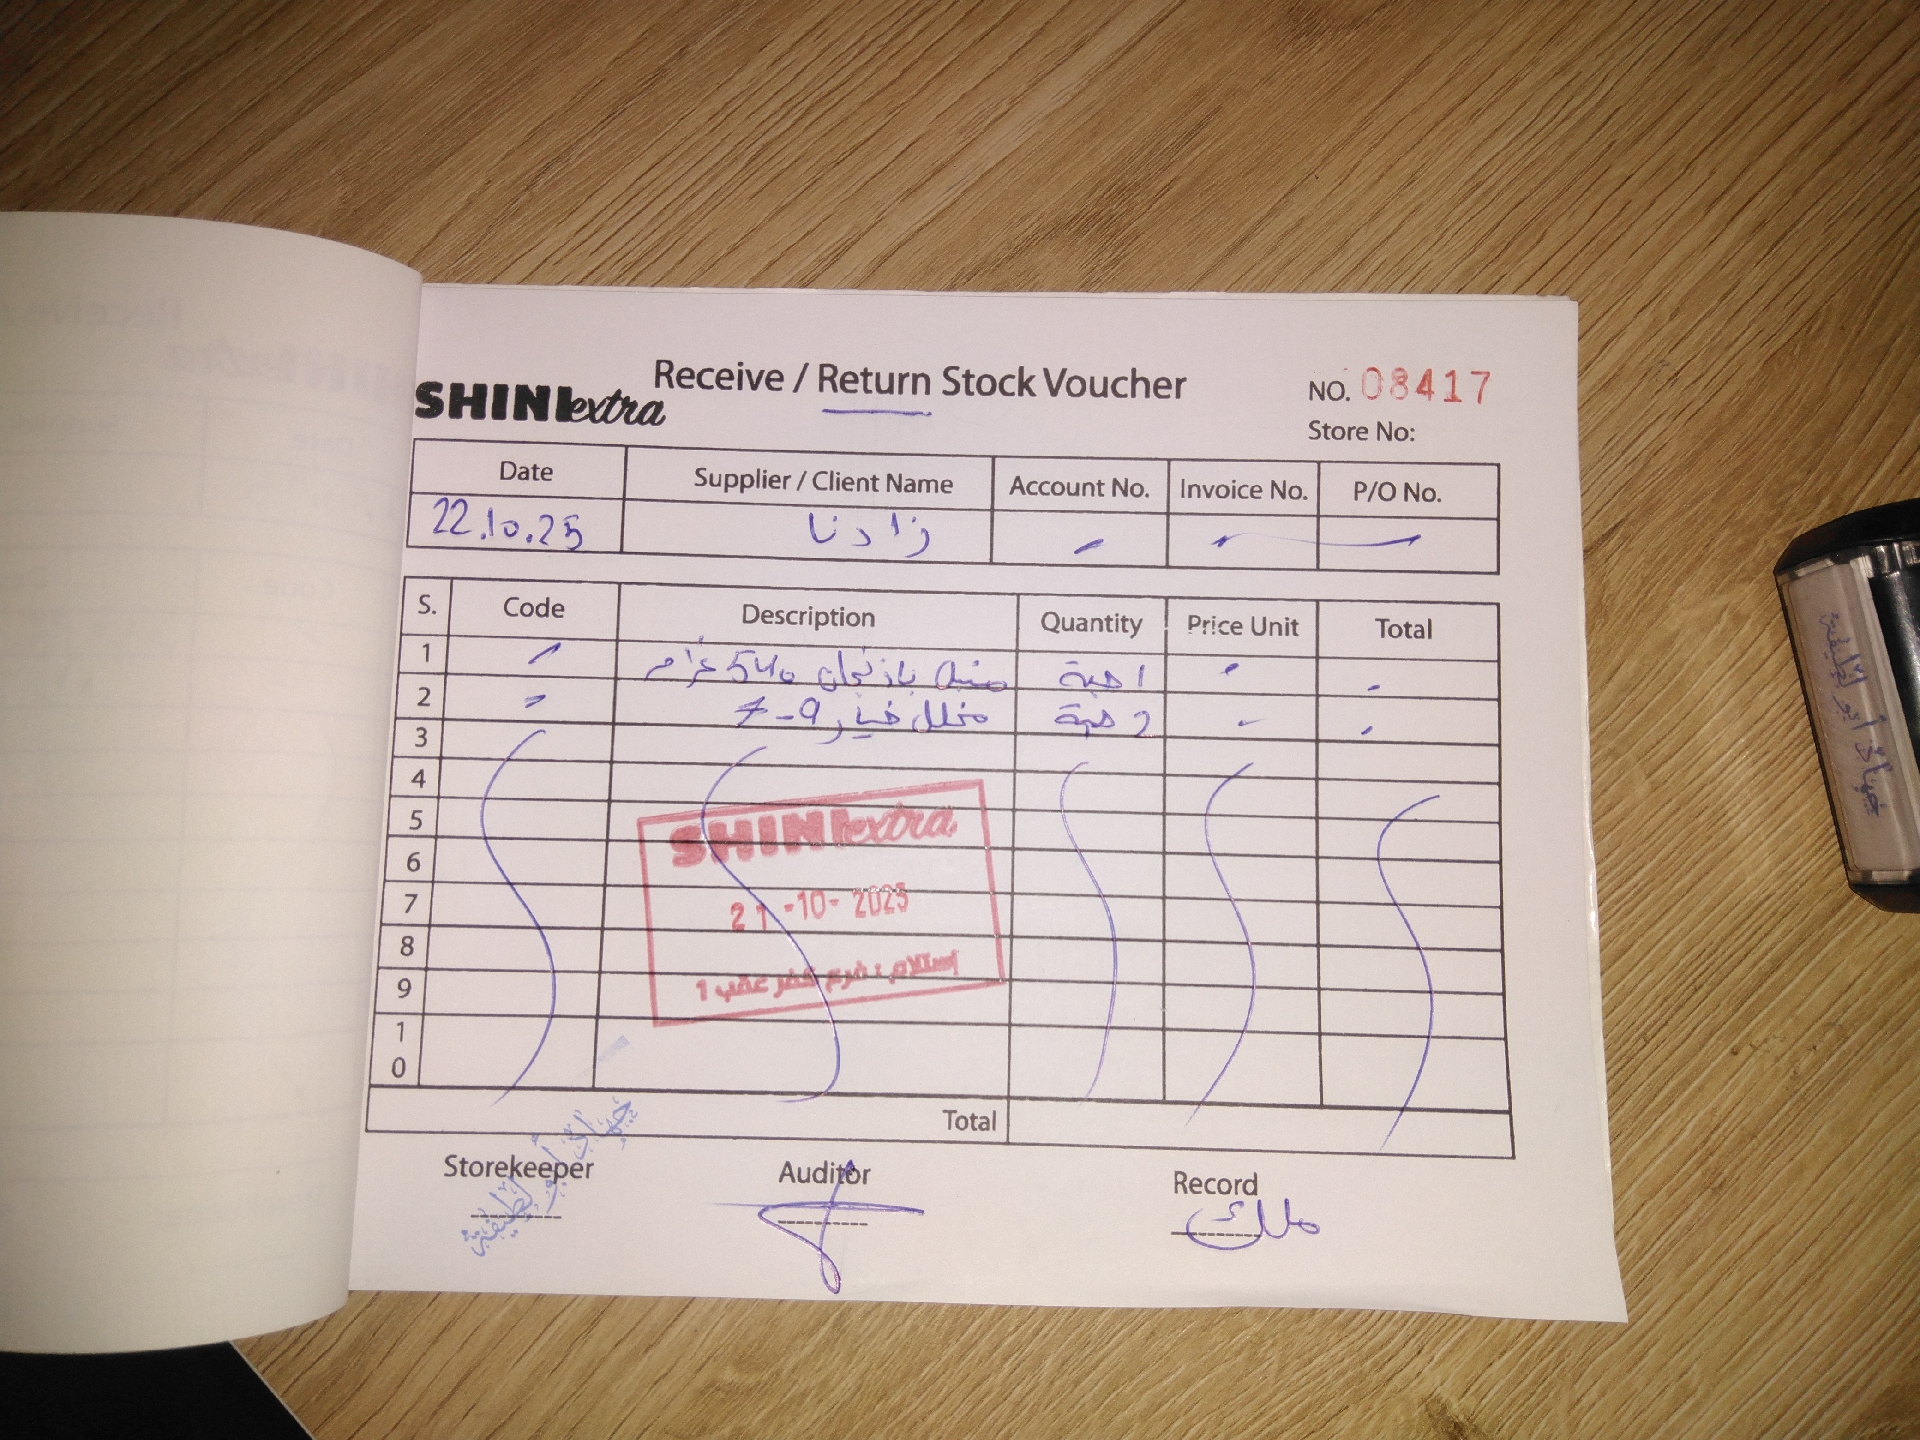 Receive / Return Stock Voucher
SHINI extra
NO. 08417
Store No:
Date Supplier / Client Name Account No. Invoice No. P/O No.
22.10.25 زادنا - - -
S. Code Description Quantity Price Unit Total
1 متبل باذنجان 540 غرام 1 حبة
2 مخلل خيار 9-7 2 حبة
3
4
5
6
7
8
9
10
SHINI extra
21-10-2025
إستلام : فرع كفر عقب 1
Total
Storekeeper Auditor Record
جهاد أبو لطيفة
ملك
جهاد أبو لطيفة